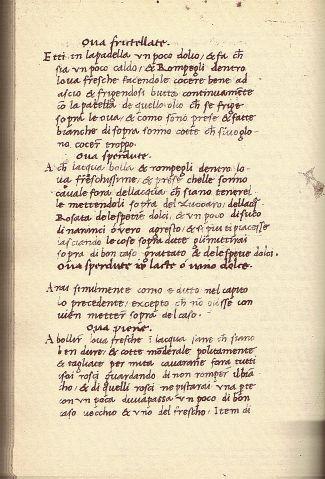 Oua frictellate.
Etti in la padella un poco dolio, & fa ch
sia un poco caldo, & Rompegli dentro
loua fresche facendole cocere bene ad
ascio & frigendosi butta continuamente
cō la patella de quello olio ch se frige
sopra le oua, & como sono prese & fatte
bianche di sopra sonno cotte ch si uoglo
no cocer troppo.
Oua sperdute.
A ch lacqua bolla & rompegli dentro lo
ua freschissime, & prese chelle sonno
cauale fora dellacqua ch siano tenerel
le mettendoli sopra del zuccaro, dellacq
Rosata dele spetie dolci, & un poco di suco
di naranci o uero agresto, &
lasciando le cose sopra dicte gli mitirai
sopra di bon caso grattato & dele spetie dolci.
Oua sperdute in lacte o uino dolce.
Arai similmente como e ditto nel capito
lo precedente, excepto ch no gli se con
uien metter sopra del caso.
Oua piene.
A bollir oua fresche i lacqua sane ch siano
ben dure, & cotte monderale politamente
& tagliate per mita cauarane fora tutti
rosci guardando di non romper il bia
cho, & di quelli rosci ne pistarai una pte
con un poca di uua passa un poco di bon
caso uecchio & uno del frescho, Item di